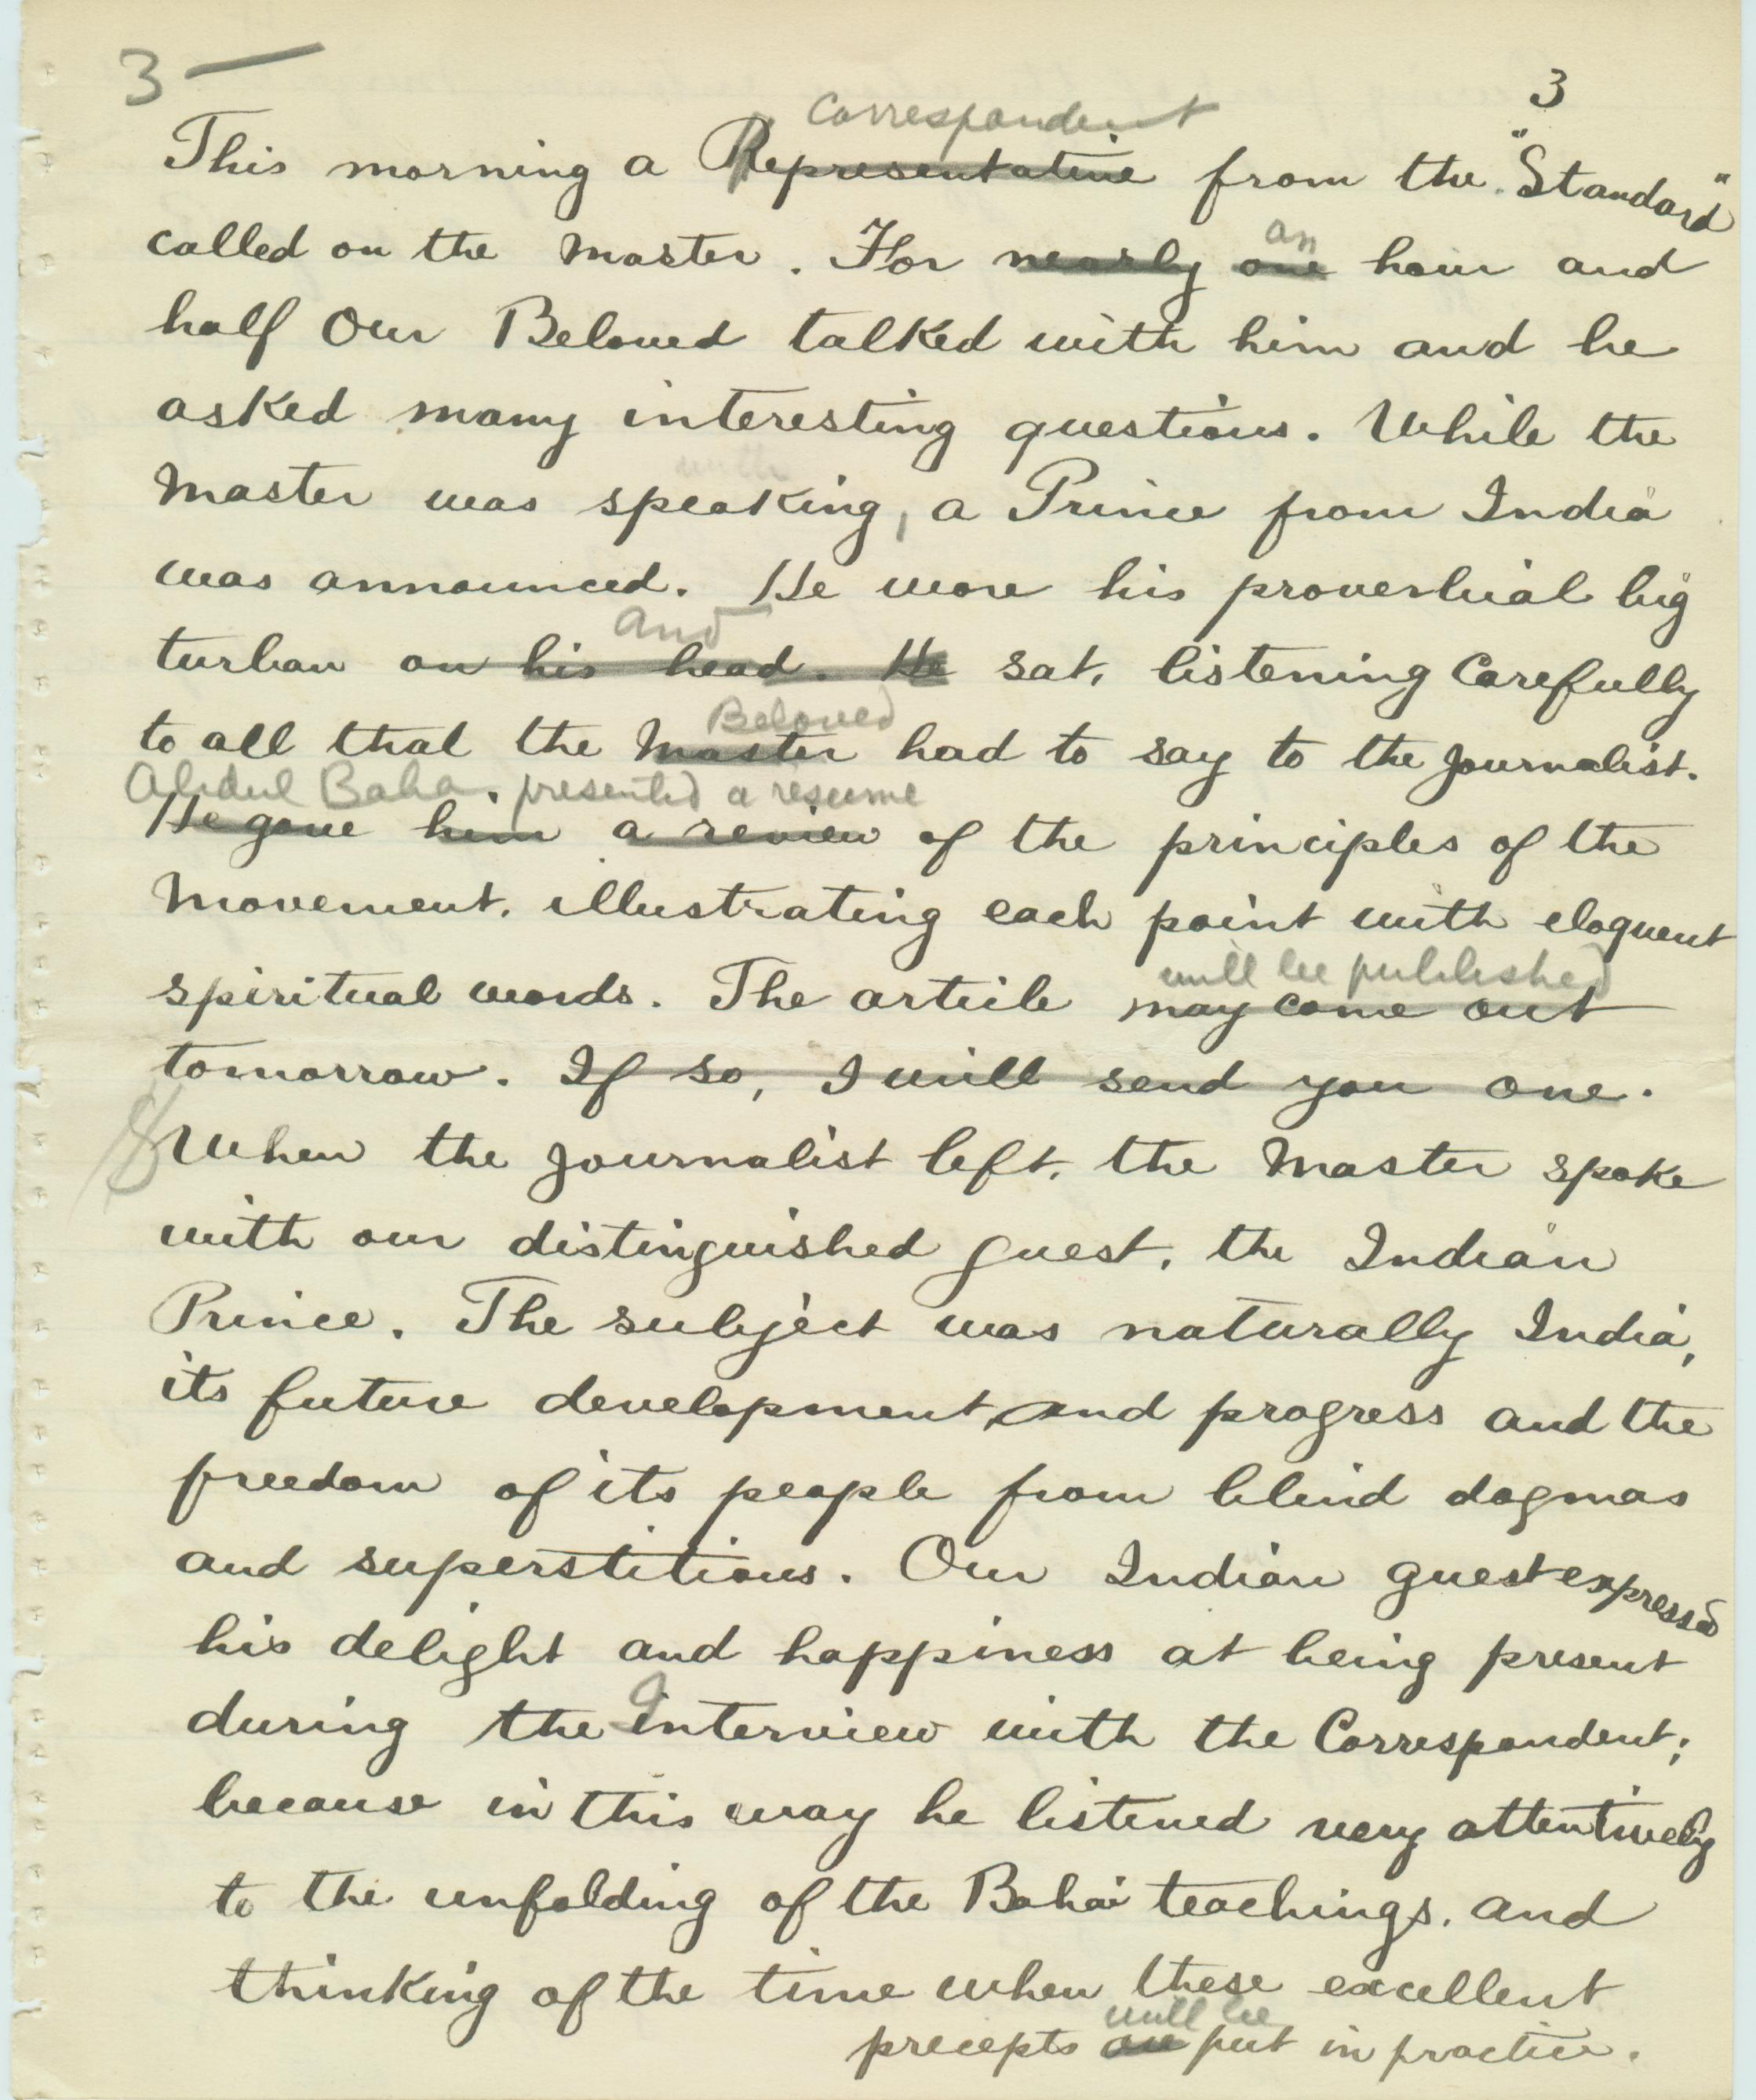 3 —
3
correspondent
This morning a Representative from the "Standard"
an
called on the Master. For nearly one hour and
half Our Beloved talked with him and he
asked many interesting questions. While the
with
Master was speaking, a Prince from India
was announced. He wore his proverbial big
and
turban on his head. He sat, listening Carefully
Beloved
to all that the Master had to say to the Journalist.
Abdul Baha. presented a resume
He gave him a review of the principles of the
Movement, illustrating each point with eloquent
will be published
spiritual words. The article may come out
tomorrow. If so, I will send you one.
When the Journalist left, the Master spoke
with our distinguished guest, the Indian
Prince. The subject was naturally India,
its future development, and progress and the
freedom of its people from blind dogmas
and superstitions. Our Indian guest expressed
his delight and happiness at being present
during the Interview with the Correspondent;
because in this way he listened very attentively
to the unfolding of the Bahai teachings, and
thinking of the time when these excellent
will be
precepts are put in practice.